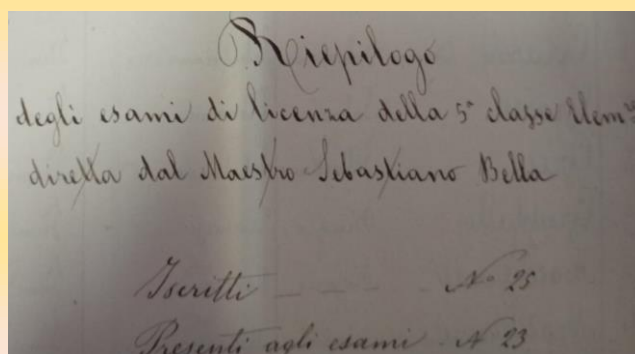 Riepilogo
degli esami di licenza della 5ª classe Elem.re
diretta dal Maestro Sebastiano Bella
Iscritti - - - - Nº 25
Presenti agli esami . Nº 23